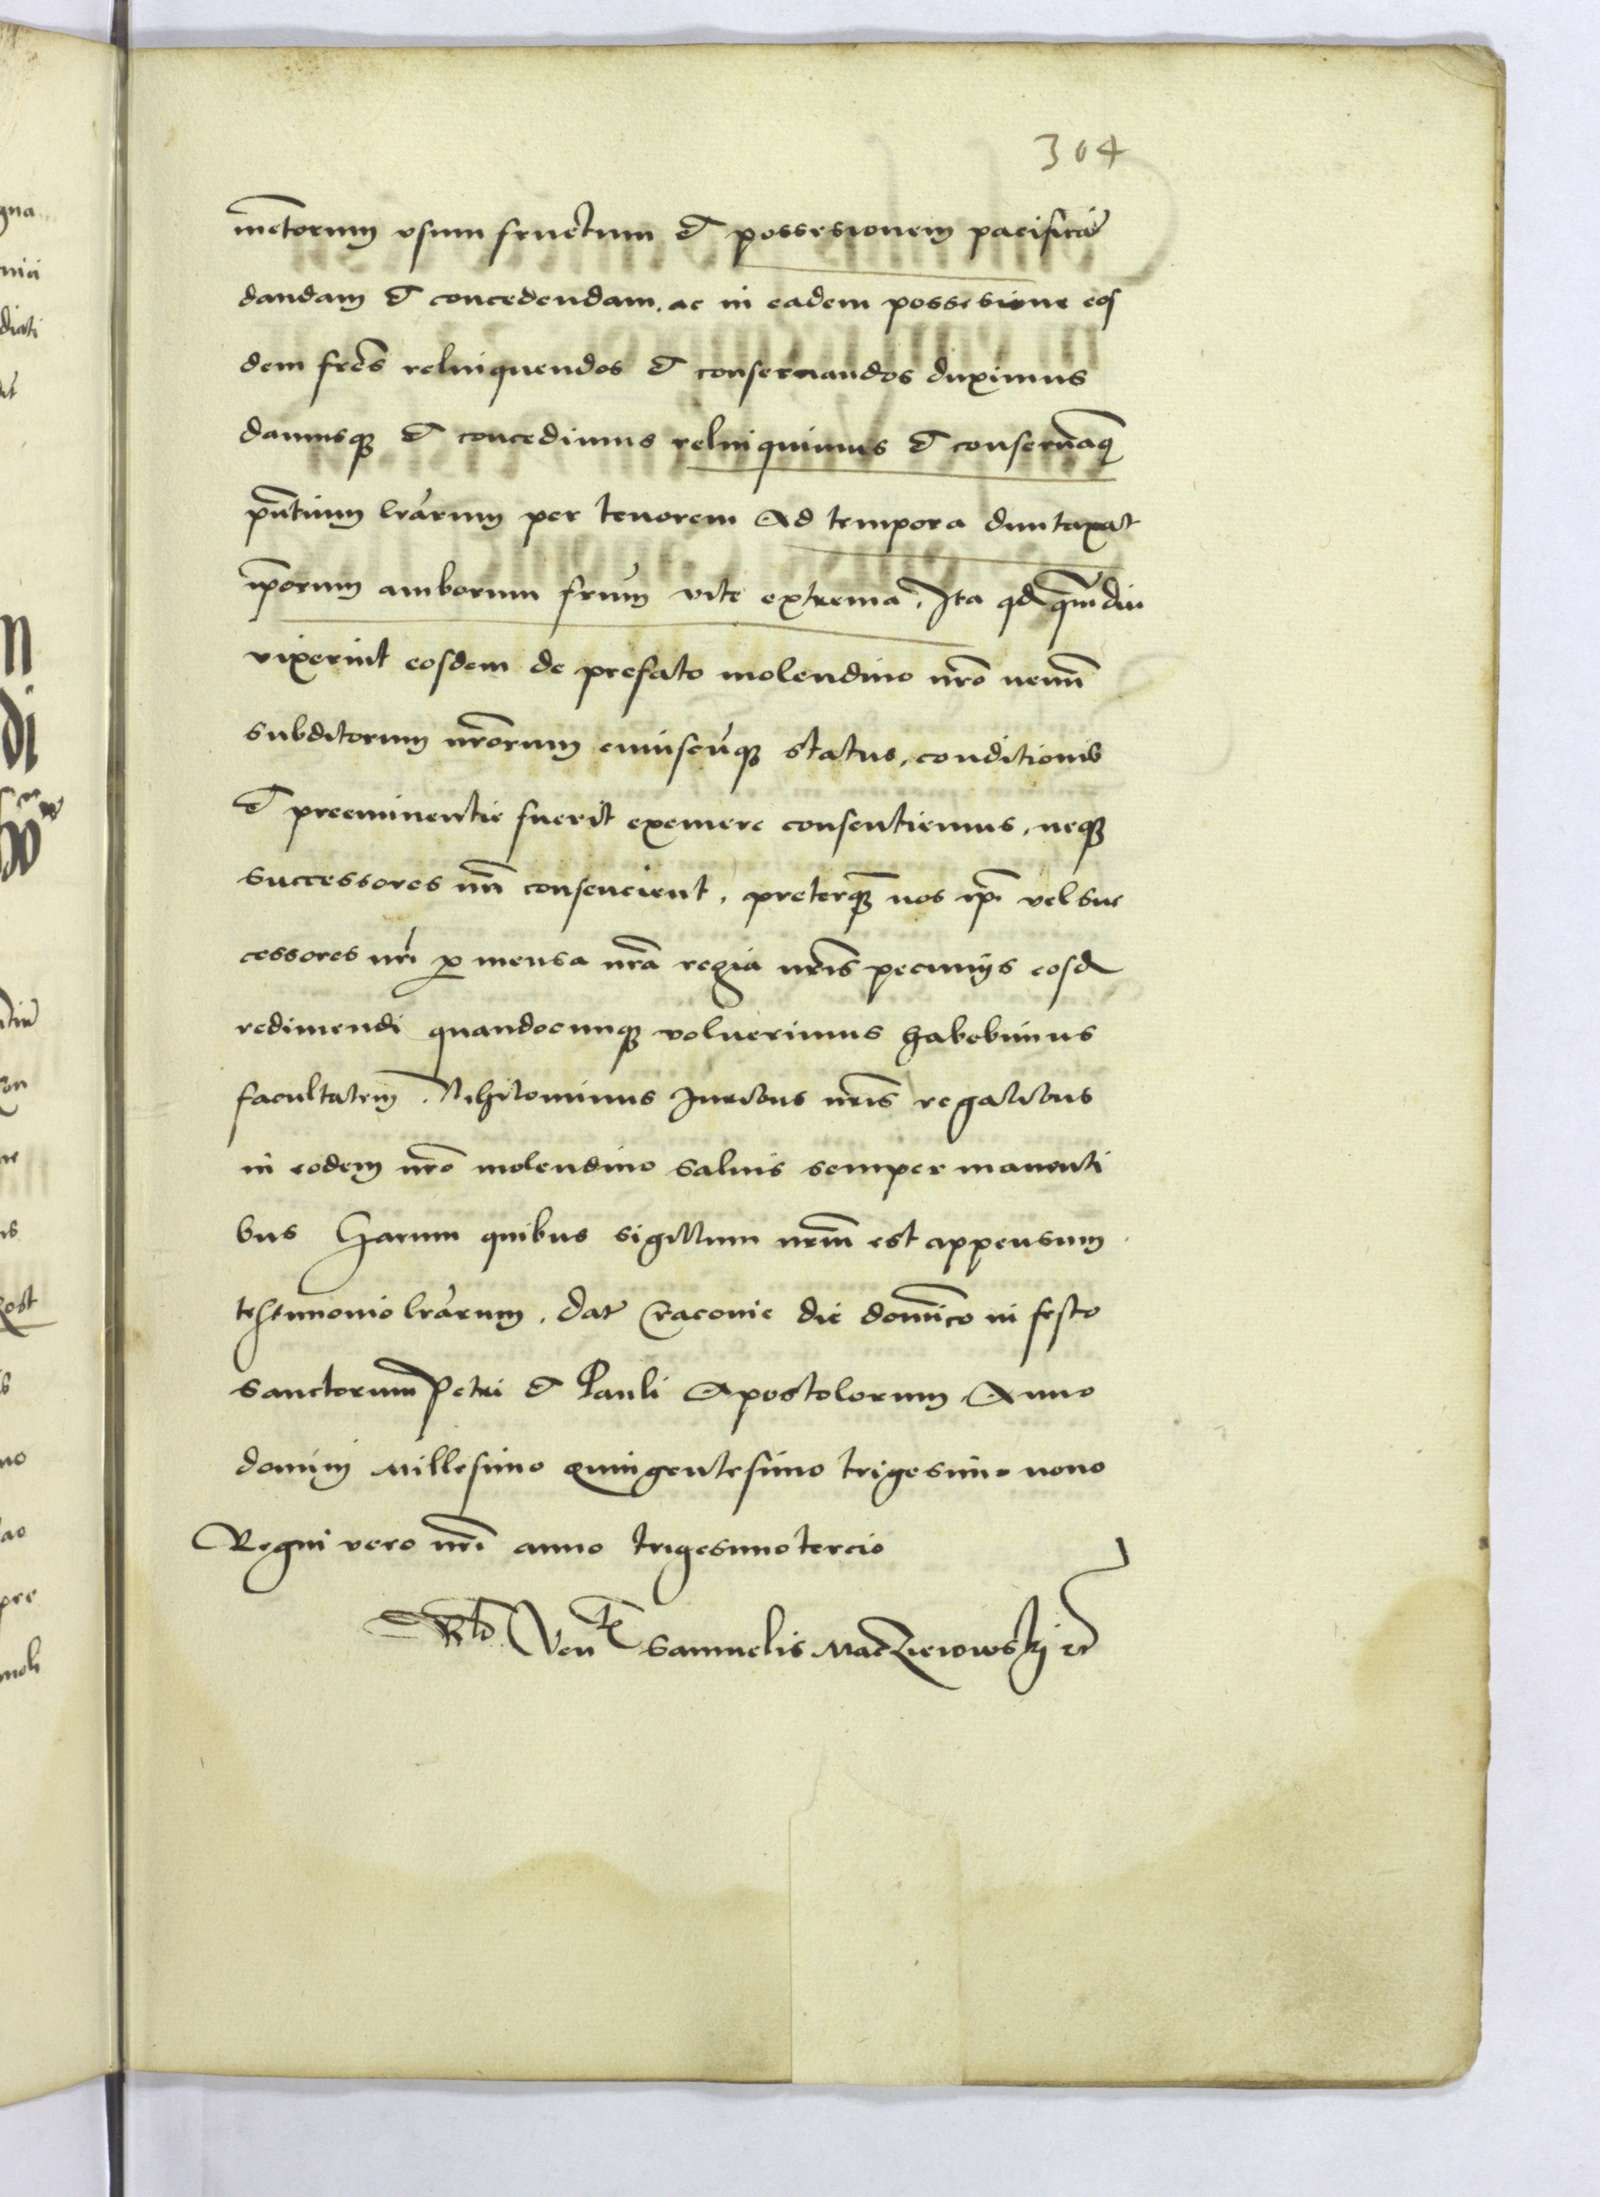 304
mẽtorum vsum fructum et possesionem pacificã
dandam et concedendam, ac in eadem possesione eos
dem frẽs relinquendos et conseruandos duximus
damusq₃ et concedimus relinquimus et conseruãq
pñtium lrãrum per tenorem Ad tempora duntaxat
ip̃orum amborum frũm vite extrema, Ita qd q̃mdiu
vixerint eosdem de prefato molendino nrõ nemĩ
subditorum nrõrum cuiuscũq₃ status, conditionis
et preeminentie fuerit exemere consentiemus, neq₃
successores nrĩ consencient, preterq̃ nos ip̃i vel suc
cessores nrĩ p mensa nrã regia nrĩs pecunijs eosd
redimendi quandocunq₃ voluerimus habebimus
facultatem. Nihilominus Juribus nrĩs regalibus
in eodem nrõ molendino saluis semper manenti
bus Harum quibus sigillum nrũm est appensum
testimonio lrãrum. Dat Cracouie die domĩco in festo
sanctorum Petri et Pauli Apostolorum, Anno
domini Millesimo Quingentesimo trigesimo nono
Regni vero nrĩ anno trigesimotercio
Rlo Ven Samuelis Maczieiowskj etc